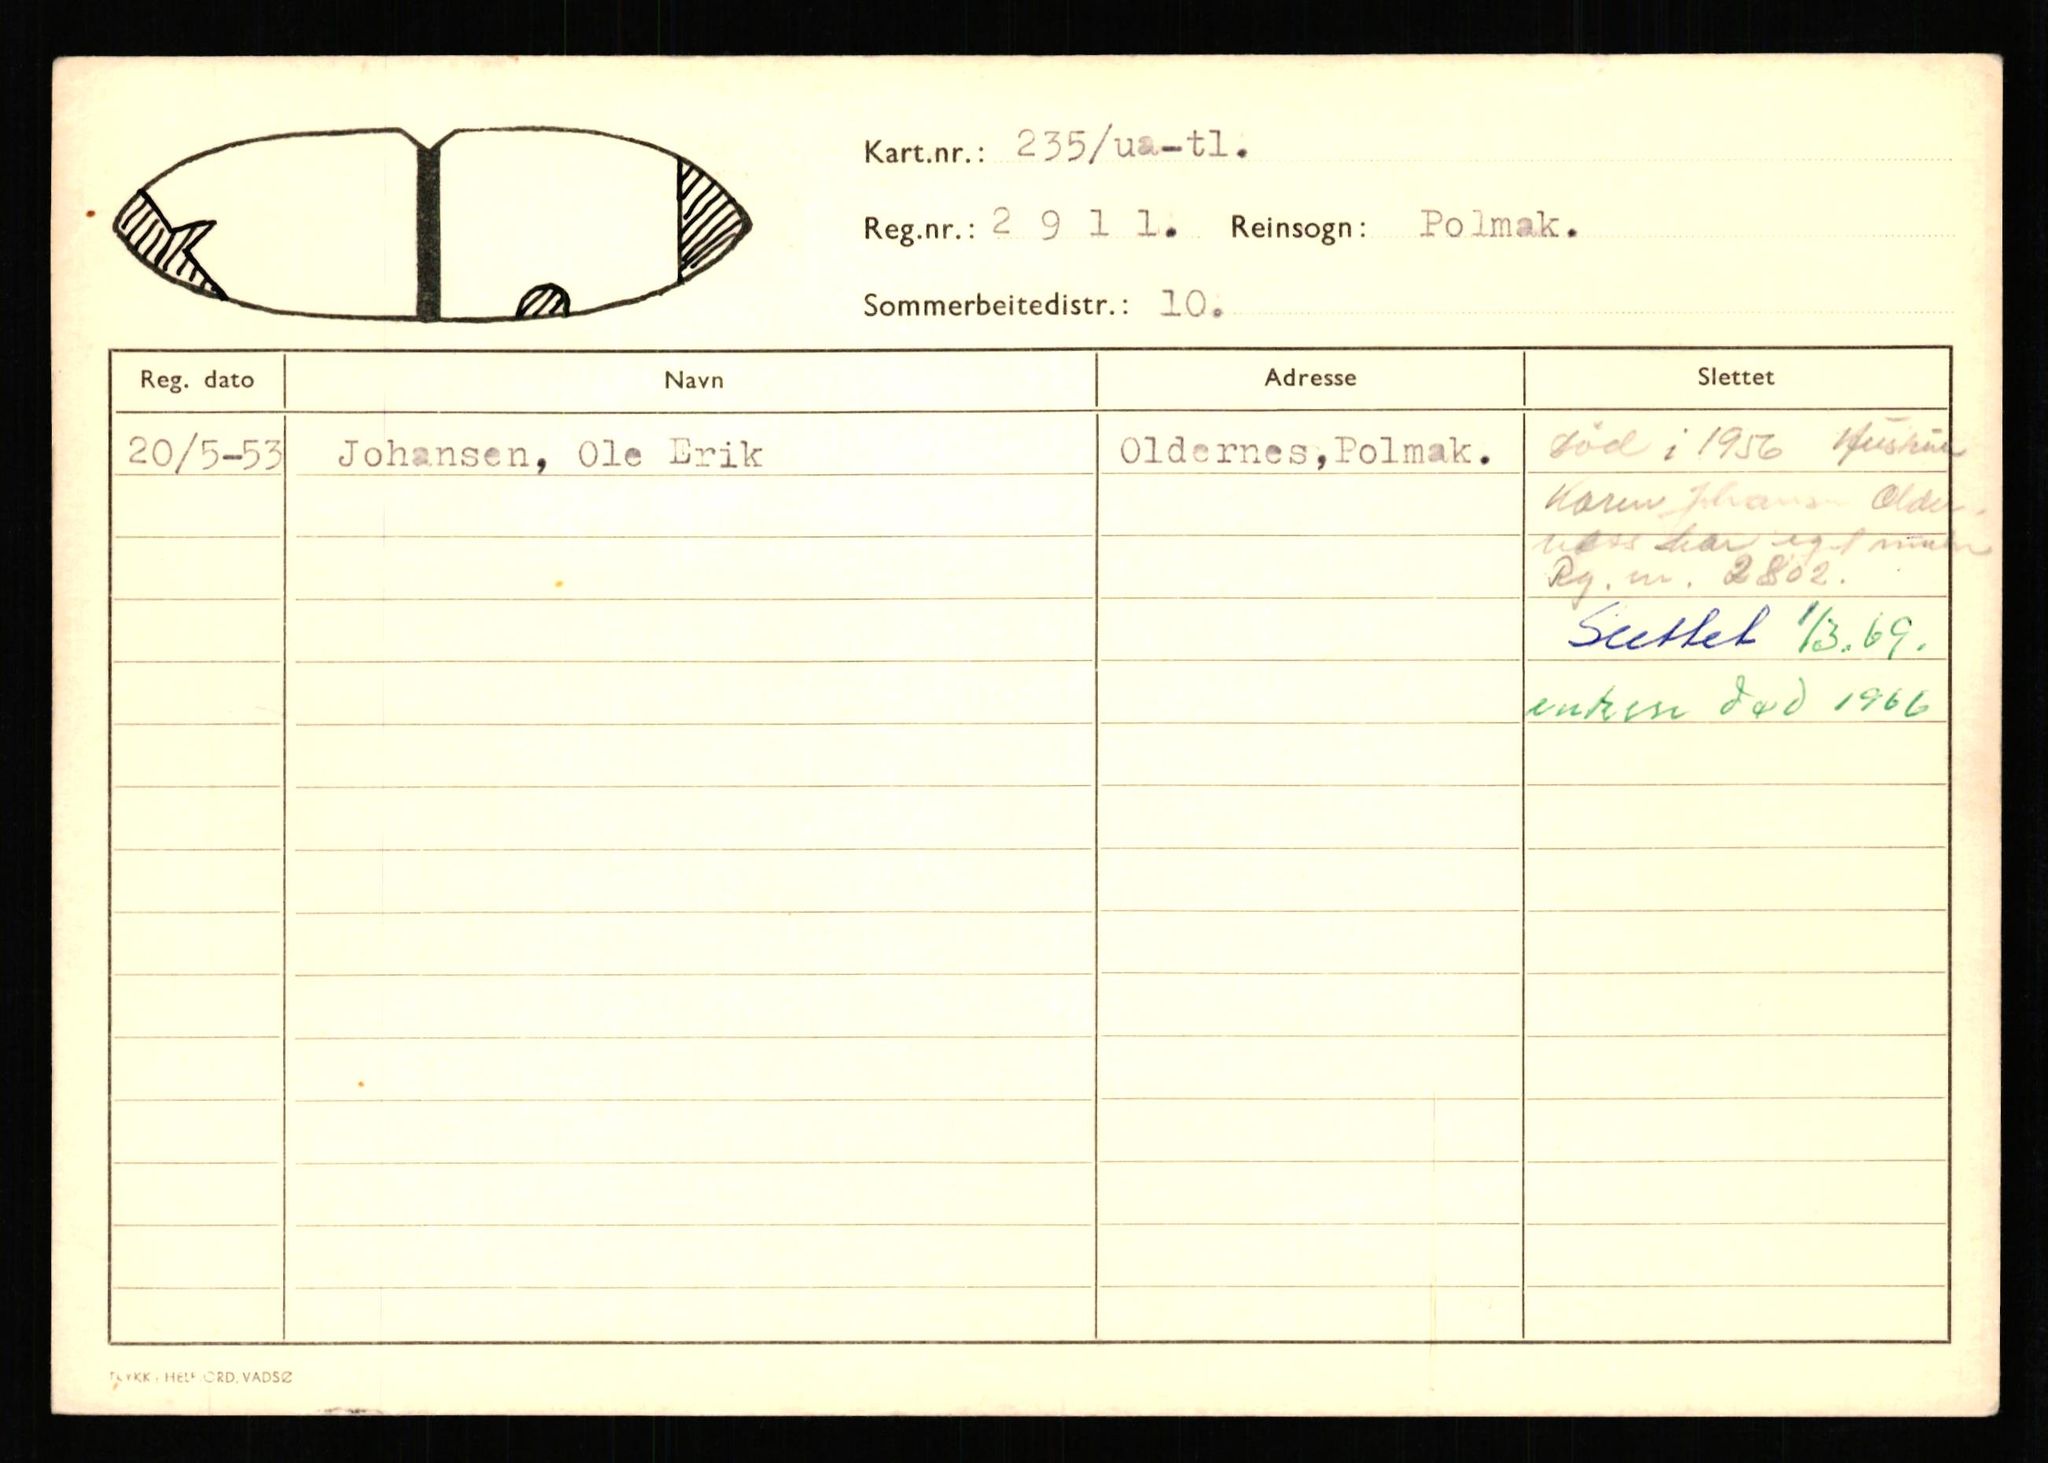 Kart.nr.: 235/ua-tl.
Reg.nr.: 2 9 1 1. Reinsogn: Polmak.
Sommerbeitedistr.: 10.
Reg. dato Navn Adresse Slettet
20/5-53 Johansen, Ole Erik Oldernes,Polmak. Död i 1956 Hustru
Karen Johansen Older-
ness har eget
Rg. nr. 2802.
Slettet 1/3.69.
enken død 1966
HELFJORD, VADSØ